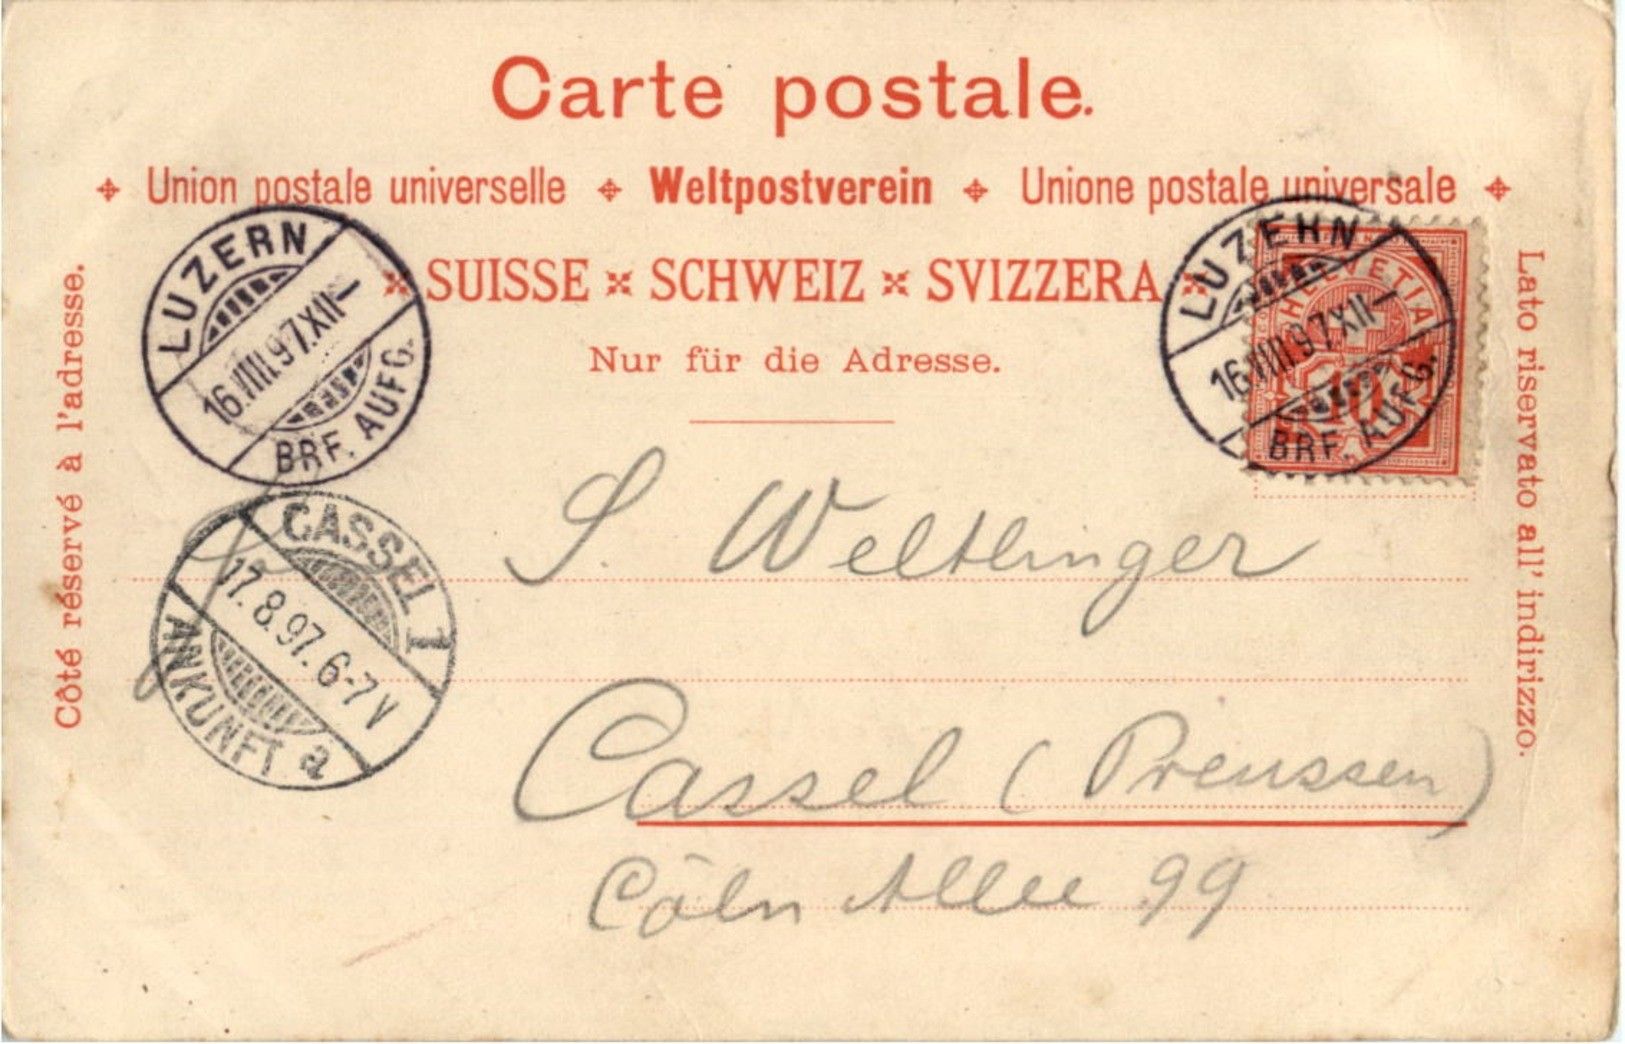 Carte postale.
Union postale universelle Weltpostverein Unione postale universale
SUISSE SCHWEIZ SVIZZERA
Nur für die Adresse.
Côté réservé à l'adresse.
Lato riservato all' indirizzo.
LUZERN
16.VIII.97.XII–
BRF. AUFG.
LUZERN
16.VIII.97.XII–
BRF. AUFG.
HELVETIA
10
CASSEL 1
17.8.97.6-7V
ANKUNFT a
S. Weltlinger
Cassel (Preussen)
Cöln Allee 99